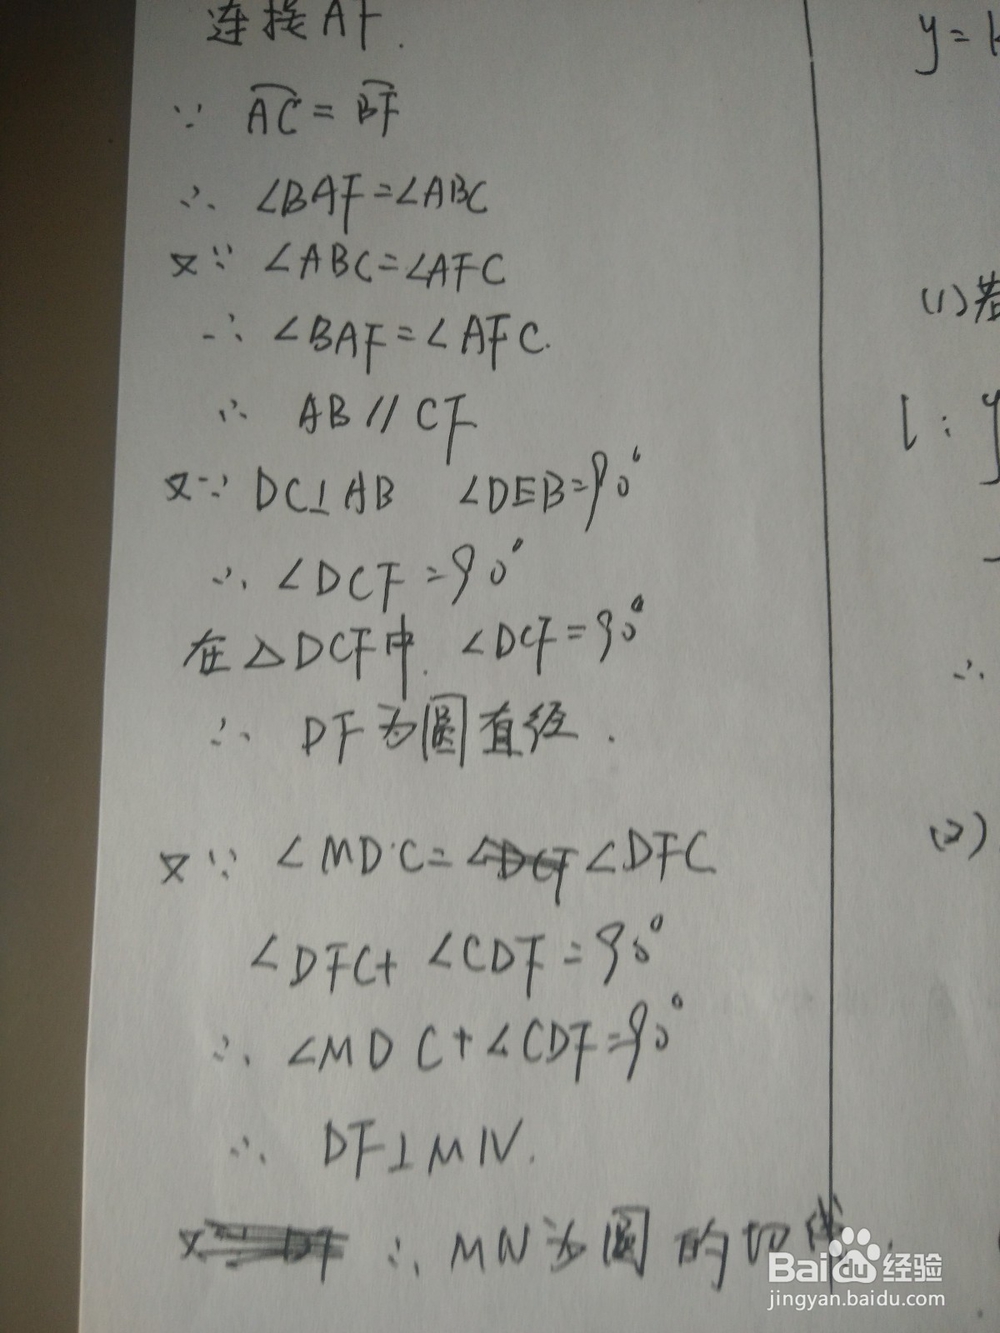 连接AF.
∵ AC = BF
∴ ∠BAF=∠ABC
又∵ ∠ABC=∠AFC
∴ ∠BAF=∠AFC.
∴ AB∥CF
又∵ DC⊥AB ∠DEB=90°
∴ ∠DCF=90°
在△DCF中. ∠DCF=90°
∴ DF为圆直径.
又∵ ∠MDC=∠DFC
∠DFC+∠CDF=90°
∴ ∠MDC+∠CDF=90°
∴ DF⊥MN.
∴ MN为圆的切线.
y=
(1)若
l: y
∴
(2)
Baidu 经验
jingyan.baidu.com